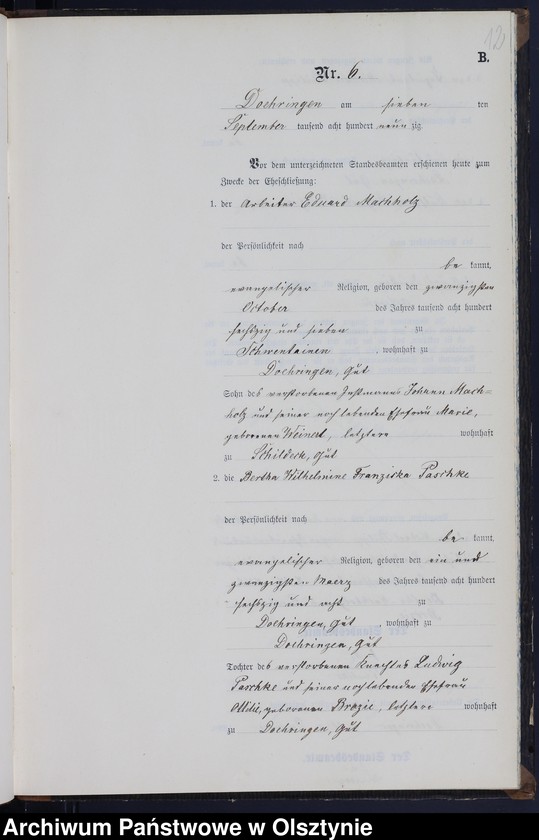 12
B.
Nr. 6.
Doehringen am sieben ten
September tausend acht hundert neun zig.
Vor dem unterzeichneten Standesbeamten erschienen heute zum
Zwecke der Eheschließung:
1. der Arbeiter Eduard Machholz
der Persönlichkeit nach
be kannt,
evangelischer Religion, geboren den zwanzigsten
October des Jahres tausend acht hundert
sechszig und sieben zu
Schwentainen, wohnhaft zu
Doehringen, Gut
Sohn des verstorbenen Instmanns Johann Mach-
holz und seiner noch lebenden Ehefrau Marie,
geborenen Weinert, letztere wohnhaft
zu Schildeck, Gut
2. die Bertha Wilhelmine Franziska Paschke
der Persönlichkeit nach
be kannt,
evangelischer Religion, geboren den ein und
zwanzigsten Maerz des Jahres tausend acht hundert
sechszig und acht zu
Doehringen, Gut, wohnhaft zu
Doehringen, Gut
Tochter des verstorbenen Knechtes Ludwig
Paschke und seiner noch lebenden Ehefrau
geborenen Brozie, letztere wohnhaft
zu Doehringen, Gut
Archiwum Państwowe w Olsztynie